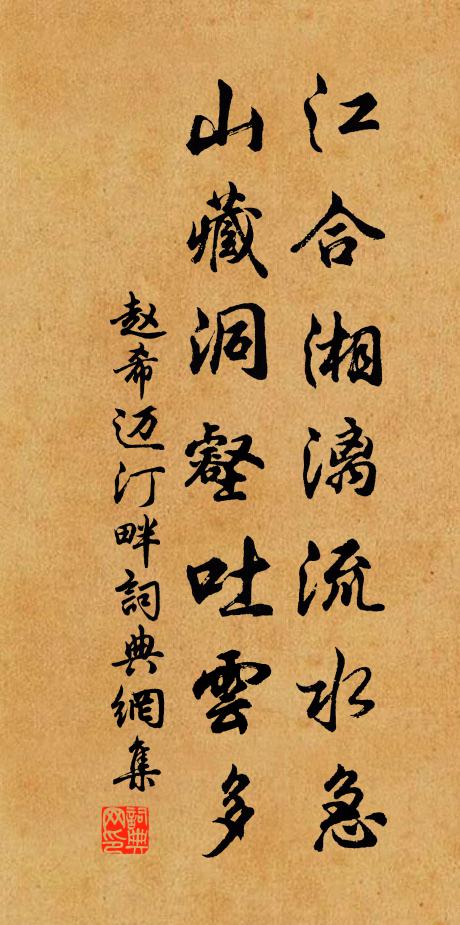 江合湘漓流水急
山藏洞壑吐雲多
赵希迈汀畔詞典網集
詞典
网印